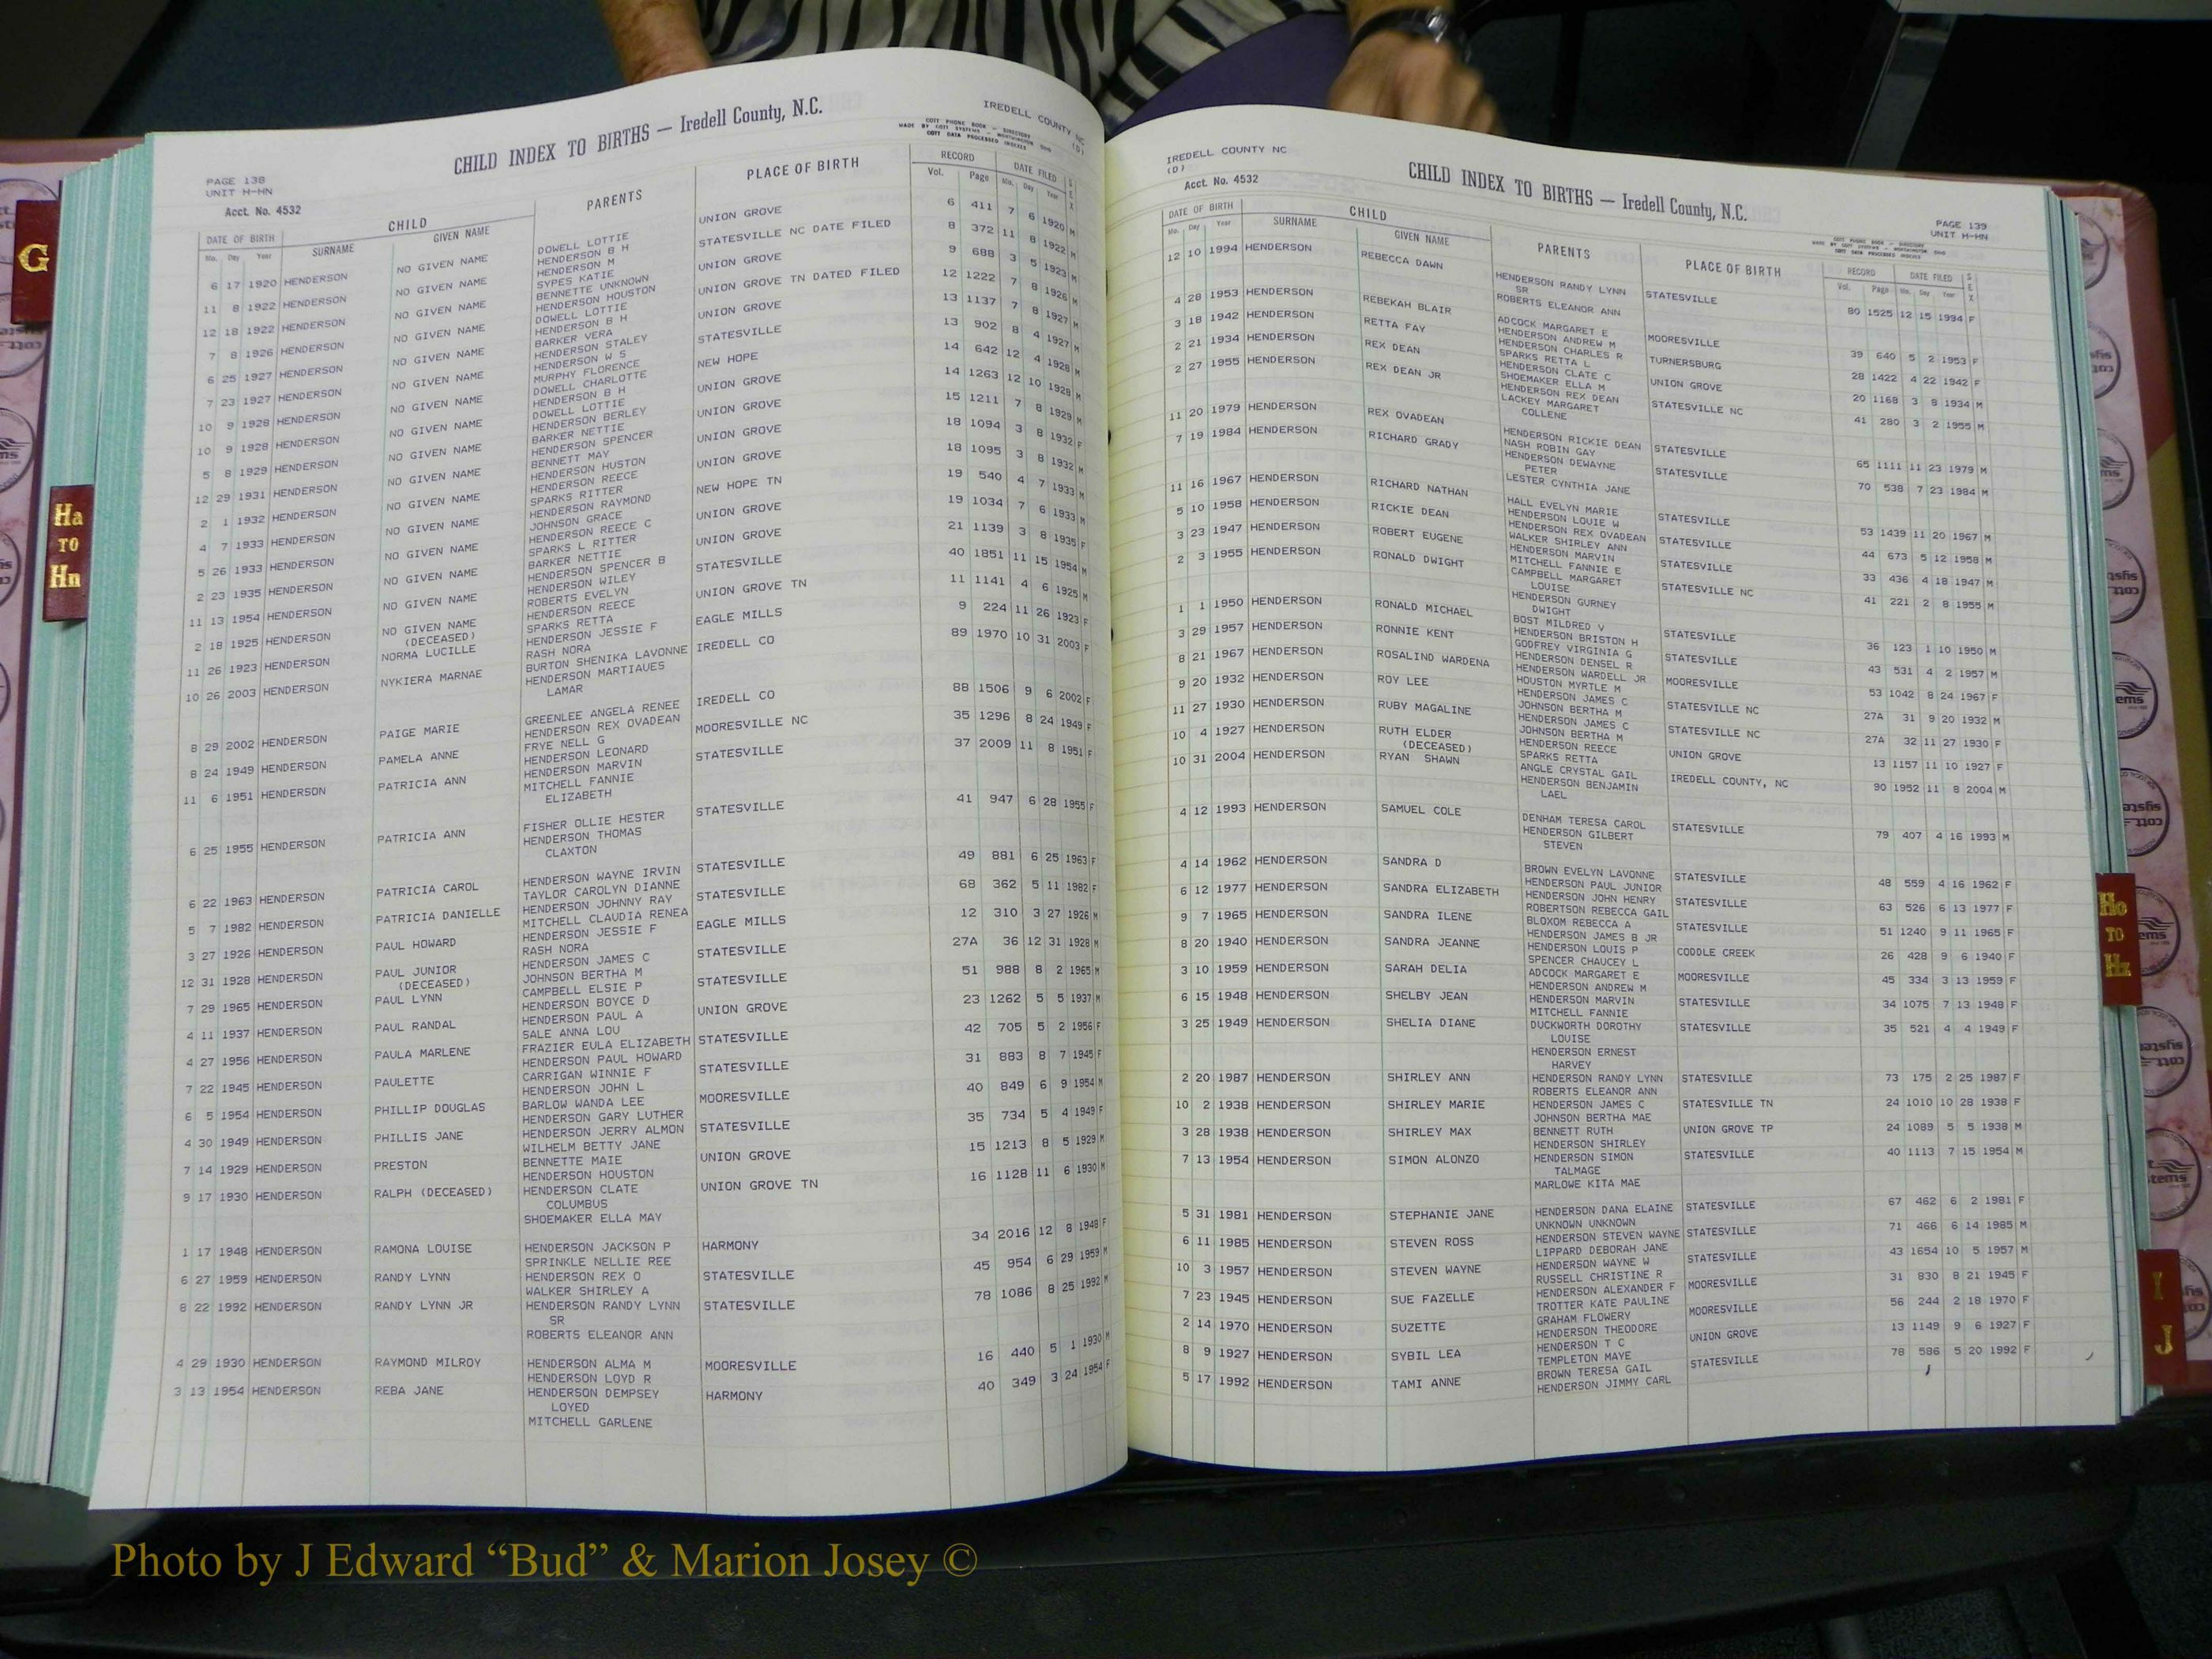 CHILD INDEX TO BIRTHS — Iredell County, N.C.
IREDELL COUNTY NC
(D)
COTT PHONE BOOK — DIRECTORY
MADE BY COTT SYSTEMS — WORTHINGTON OHIO
COTT DATA PROCESSED INDEXES
PAGE 138
UNIT H-HN
Acct. No. 4532
DATE OF BIRTH CHILD PARENTS PLACE OF BIRTH RECORD DATE FILED SEX
Mo. Day Year SURNAME GIVEN NAME Vol. Page Mo. Day Year
6 17 1920 HENDERSON NO GIVEN NAME DOWELL LOTTIE UNION GROVE 6 411 7 6 1920 M
HENDERSON B H
11 8 1922 HENDERSON NO GIVEN NAME HENDERSON M STATESVILLE NC DATE FILED 8 372 11 8 1922 M
SYPES KATIE
12 18 1922 HENDERSON NO GIVEN NAME BENNETTE UNKNOWN UNION GROVE 9 688 3 5 1923 M
HENDERSON HOUSTON
7 8 1926 HENDERSON NO GIVEN NAME DOWELL LOTTIE UNION GROVE TN DATED FILED 12 1222 7 8 1926 M
HENDERSON B H
6 25 1927 HENDERSON NO GIVEN NAME BARKER VERA UNION GROVE 13 1137 7 8 1927 M
HENDERSON STALEY
7 23 1927 HENDERSON NO GIVEN NAME HENDERSON W S STATESVILLE 13 902 8 4 1927 M
MURPHY FLORENCE
10 9 1928 HENDERSON NO GIVEN NAME DOWELL CHARLOTTE NEW HOPE 14 642 12 4 1928 M
HENDERSON B H
10 9 1928 HENDERSON NO GIVEN NAME DOWELL LOTTIE UNION GROVE 14 1263 12 10 1928 M
HENDERSON BERLEY
5 8 1929 HENDERSON NO GIVEN NAME BARKER NETTIE UNION GROVE 15 1211 7 8 1929 M
HENDERSON SPENCER
12 29 1931 HENDERSON NO GIVEN NAME BENNETT MAY UNION GROVE 18 1094 3 8 1932 F
HENDERSON HUSTON
2 1 1932 HENDERSON NO GIVEN NAME HENDERSON REECE UNION GROVE 18 1095 3 8 1932 M
SPARKS RITTER
4 7 1933 HENDERSON NO GIVEN NAME HENDERSON RAYMOND NEW HOPE TN 19 540 4 7 1933 M
JOHNSON GRACE
5 26 1933 HENDERSON NO GIVEN NAME HENDERSON REECE C UNION GROVE 19 1034 7 6 1933 M
SPARKS L RITTER
2 23 1935 HENDERSON NO GIVEN NAME BARKER NETTIE UNION GROVE 21 1139 3 8 1935 F
HENDERSON SPENCER B
11 13 1954 HENDERSON NO GIVEN NAME HENDERSON WILEY STATESVILLE 40 1851 11 15 1954 M
ROBERTS EVELYN
2 18 1925 HENDERSON NO GIVEN NAME HENDERSON REECE UNION GROVE TN 11 1141 4 6 1925 M
(DECEASED) SPARKS RETTA
11 26 1923 HENDERSON NORMA LUCILLE HENDERSON JESSIE F EAGLE MILLS 9 224 11 26 1923 F
RASH NORA
10 26 2003 HENDERSON NYKIERA MARNAE BURTON SHENIKA LAVONNE IREDELL CO 89 1970 10 31 2003 F
HENDERSON MARTIAUES
LAMAR
8 29 2002 HENDERSON PAIGE MARIE GREENLEE ANGELA RENEE IREDELL CO 88 1506 9 6 2002 F
HENDERSON REX OVADEAN
8 24 1949 HENDERSON PAMELA ANNE FRYE NELL G MOORESVILLE NC 35 1296 8 24 1949 F
HENDERSON LEONARD
11 6 1951 HENDERSON PATRICIA ANN HENDERSON MARVIN STATESVILLE 37 2009 11 8 1951 F
MITCHELL FANNIE
ELIZABETH
6 25 1955 HENDERSON PATRICIA ANN FISHER OLLIE HESTER STATESVILLE 41 947 6 28 1955 F
HENDERSON THOMAS
CLAXTON
6 22 1963 HENDERSON PATRICIA CAROL HENDERSON WAYNE IRVIN STATESVILLE 49 881 6 25 1963 F
TAYLOR CAROLYN DIANNE
5 7 1982 HENDERSON PATRICIA DANIELLE HENDERSON JOHNNY RAY STATESVILLE 68 362 5 11 1982 F
MITCHELL CLAUDIA RENEA
3 27 1926 HENDERSON PAUL HOWARD HENDERSON JESSIE F EAGLE MILLS 12 310 3 27 1926 M
RASH NORA
12 31 1928 HENDERSON PAUL JUNIOR HENDERSON JAMES C STATESVILLE 27A 36 12 31 1928 M
(DECEASED) JOHNSON BERTHA M
7 29 1965 HENDERSON PAUL LYNN CAMPBELL ELSIE P STATESVILLE 51 988 8 2 1965 M
HENDERSON BOYCE D
4 11 1937 HENDERSON PAUL RANDAL HENDERSON PAUL A UNION GROVE 23 1262 5 5 1937 M
SALE ANNA LOU
4 27 1956 HENDERSON PAULA MARLENE FRAZIER EULA ELIZABETH STATESVILLE 42 705 5 2 1956 F
HENDERSON PAUL HOWARD
7 22 1945 HENDERSON PAULETTE CARRIGAN WINNIE F STATESVILLE 31 883 8 7 1945 F
HENDERSON JOHN L
6 5 1954 HENDERSON PHILLIP DOUGLAS BARLOW WANDA LEE MOORESVILLE 40 849 6 9 1954 M
HENDERSON GARY LUTHER
4 30 1949 HENDERSON PHILLIS JANE HENDERSON JERRY ALMON STATESVILLE 35 734 5 4 1949 F
WILHELM BETTY JANE
7 14 1929 HENDERSON PRESTON BENNETTE MAIE UNION GROVE 15 1213 8 5 1929 M
HENDERSON HOUSTON
9 17 1930 HENDERSON RALPH (DECEASED) HENDERSON CLATE UNION GROVE TN 16 1128 11 6 1930 M
COLUMBUS
SHOEMAKER ELLA MAY
1 17 1948 HENDERSON RAMONA LOUISE HENDERSON JACKSON P HARMONY 34 2016 12 8 1948 F
SPRINKLE NELLIE REE
6 27 1959 HENDERSON RANDY LYNN HENDERSON REX O STATESVILLE 45 954 6 29 1959 M
WALKER SHIRLEY A
8 22 1992 HENDERSON RANDY LYNN JR HENDERSON RANDY LYNN STATESVILLE 78 1086 8 25 1992 M
SR
ROBERTS ELEANOR ANN
4 29 1930 HENDERSON RAYMOND MILROY HENDERSON ALMA M MOORESVILLE 16 440 5 1 1930 M
HENDERSON LOYD R
3 13 1954 HENDERSON REBA JANE HENDERSON DEMPSEY HARMONY 40 349 3 24 1954 F
LOYED
MITCHELL GARLENE
IREDELL COUNTY NC
(D)
Acct. No. 4532
CHILD INDEX TO BIRTHS — Iredell County, N.C.
PAGE 139
UNIT H-HN
DATE OF BIRTH CHILD PARENTS PLACE OF BIRTH RECORD DATE FILED SEX
Mo. Day Year SURNAME GIVEN NAME Vol. Page Mo. Day Year
12 10 1994 HENDERSON REBECCA DAWN HENDERSON RANDY LYNN STATESVILLE 80 1525 12 15 1994 F
SR
ROBERTS ELEANOR ANN
4 28 1953 HENDERSON REBEKAH BLAIR ADCOCK MARGARET E MOORESVILLE 39 640 5 2 1953 F
HENDERSON ANDREW M
3 18 1942 HENDERSON RETTA FAY HENDERSON CHARLES R TURNERSBURG 28 1422 4 22 1942 F
SPARKS RETTA L
2 21 1934 HENDERSON REX DEAN HENDERSON CLATE C UNION GROVE 20 1168 3 8 1934 M
SHOEMAKER ELLA M
2 27 1955 HENDERSON REX DEAN JR HENDERSON REX DEAN STATESVILLE NC 41 280 3 2 1955 M
LACKEY MARGARET
COLLENE
11 20 1979 HENDERSON REX OVADEAN HENDERSON RICKIE DEAN STATESVILLE 65 1111 11 23 1979 M
NASH ROBIN GAY
7 19 1984 HENDERSON RICHARD GRADY HENDERSON DEWAYNE STATESVILLE 70 538 7 23 1984 M
PETER
LESTER CYNTHIA JANE
11 16 1967 HENDERSON RICHARD NATHAN HALL EVELYN MARIE STATESVILLE 53 1439 11 20 1967 M
HENDERSON LOUIE W
5 10 1958 HENDERSON RICKIE DEAN HENDERSON REX OVADEAN STATESVILLE 44 673 5 12 1958 M
WALKER SHIRLEY ANN
3 23 1947 HENDERSON ROBERT EUGENE HENDERSON MARVIN STATESVILLE 33 436 4 18 1947 M
MITCHELL FANNIE E
2 3 1955 HENDERSON RONALD DWIGHT CAMPBELL MARGARET STATESVILLE NC 41 221 2 8 1955 M
LOUISE
HENDERSON GURNEY
DWIGHT
1 1 1950 HENDERSON RONALD MICHAEL BOST MILDRED V STATESVILLE 36 123 1 10 1950 M
HENDERSON BRISTON H
3 29 1957 HENDERSON RONNIE KENT GODFREY VIRGINIA G STATESVILLE 43 531 4 2 1957 M
HENDERSON DENSEL R
8 21 1967 HENDERSON ROSALIND WARDENA HENDERSON WARDELL JR MOORESVILLE 53 1042 8 24 1967 F
HOUSTON MYRTLE M
9 20 1932 HENDERSON ROY LEE HENDERSON JAMES C STATESVILLE NC 27A 31 9 20 1932 M
JOHNSON BERTHA M
11 27 1930 HENDERSON RUBY MAGALINE HENDERSON JAMES C STATESVILLE NC 27A 32 11 27 1930 F
JOHNSON BERTHA M
10 4 1927 HENDERSON RUTH ELDER HENDERSON REECE UNION GROVE 13 1157 11 10 1927 F
(DECEASED) SPARKS RETTA
10 31 2004 HENDERSON RYAN SHAWN ANGLE CRYSTAL GAIL IREDELL COUNTY, NC 90 1952 11 8 2004 M
HENDERSON BENJAMIN
LAEL
4 12 1993 HENDERSON SAMUEL COLE DENHAM TERESA CAROL STATESVILLE 79 407 4 16 1993 M
HENDERSON GILBERT
STEVEN
4 14 1962 HENDERSON SANDRA D BROWN EVELYN LAVONNE STATESVILLE 48 559 4 16 1962 F
HENDERSON PAUL JUNIOR
6 12 1977 HENDERSON SANDRA ELIZABETH HENDERSON JOHN HENRY STATESVILLE 63 526 6 13 1977 F
ROBERTSON REBECCA GAIL
9 7 1965 HENDERSON SANDRA ILENE BLOXOM REBECCA A STATESVILLE 51 1240 9 11 1965 F
HENDERSON JAMES B JR
8 20 1940 HENDERSON SANDRA JEANNE HENDERSON LOUIS P CODDLE CREEK 26 428 9 6 1940 F
SPENCER CHAUCEY L
3 10 1959 HENDERSON SARAH DELIA ADCOCK MARGARET E MOORESVILLE 45 334 3 13 1959 F
HENDERSON ANDREW M
6 15 1948 HENDERSON SHELBY JEAN HENDERSON MARVIN STATESVILLE 34 1075 7 13 1948 F
MITCHELL FANNIE
3 25 1949 HENDERSON SHELIA DIANE DUCKWORTH DOROTHY STATESVILLE 35 521 4 4 1949 F
LOUISE
HENDERSON ERNEST
HARVEY
2 20 1987 HENDERSON SHIRLEY ANN HENDERSON RANDY LYNN STATESVILLE 73 175 2 25 1987 F
ROBERTS ELEANOR ANN
10 2 1938 HENDERSON SHIRLEY MARIE HENDERSON JAMES C STATESVILLE TN 24 1010 10 28 1938 F
JOHNSON BERTHA MAE
3 28 1938 HENDERSON SHIRLEY MAX BENNETT RUTH UNION GROVE TP 24 1089 5 5 1938 M
HENDERSON SHIRLEY
7 13 1954 HENDERSON SIMON ALONZO HENDERSON SIMON STATESVILLE 40 1113 7 15 1954 M
TALMAGE
MARLOWE KITA MAE
5 31 1981 HENDERSON STEPHANIE JANE HENDERSON DANA ELAINE STATESVILLE 67 462 6 2 1981 F
UNKNOWN UNKNOWN
6 11 1985 HENDERSON STEVEN ROSS HENDERSON STEVEN WAYNE STATESVILLE 71 466 6 14 1985 M
LIPPARD DEBORAH JANE
10 3 1957 HENDERSON STEVEN WAYNE HENDERSON WAYNE W STATESVILLE 43 1654 10 5 1957 M
RUSSELL CHRISTINE R
7 23 1945 HENDERSON SUE FAZELLE HENDERSON ALEXANDER F MOORESVILLE 31 830 8 21 1945 F
TROTTER KATE PAULINE
2 14 1970 HENDERSON SUZETTE GRAHAM FLOWERY MOORESVILLE 56 244 2 18 1970 F
HENDERSON THEODORE
8 9 1927 HENDERSON SYBIL LEA HENDERSON T C UNION GROVE 13 1149 9 6 1927 F
TEMPLETON MAYE
5 17 1992 HENDERSON TAMI ANNE BROWN TERESA GAIL STATESVILLE 78 586 5 20 1992 F
HENDERSON JIMMY CARL
G
Ha
TO
Hn
Ho
TO
Hz
I
J
Photo by J Edward “Bud” & Marion Josey ©